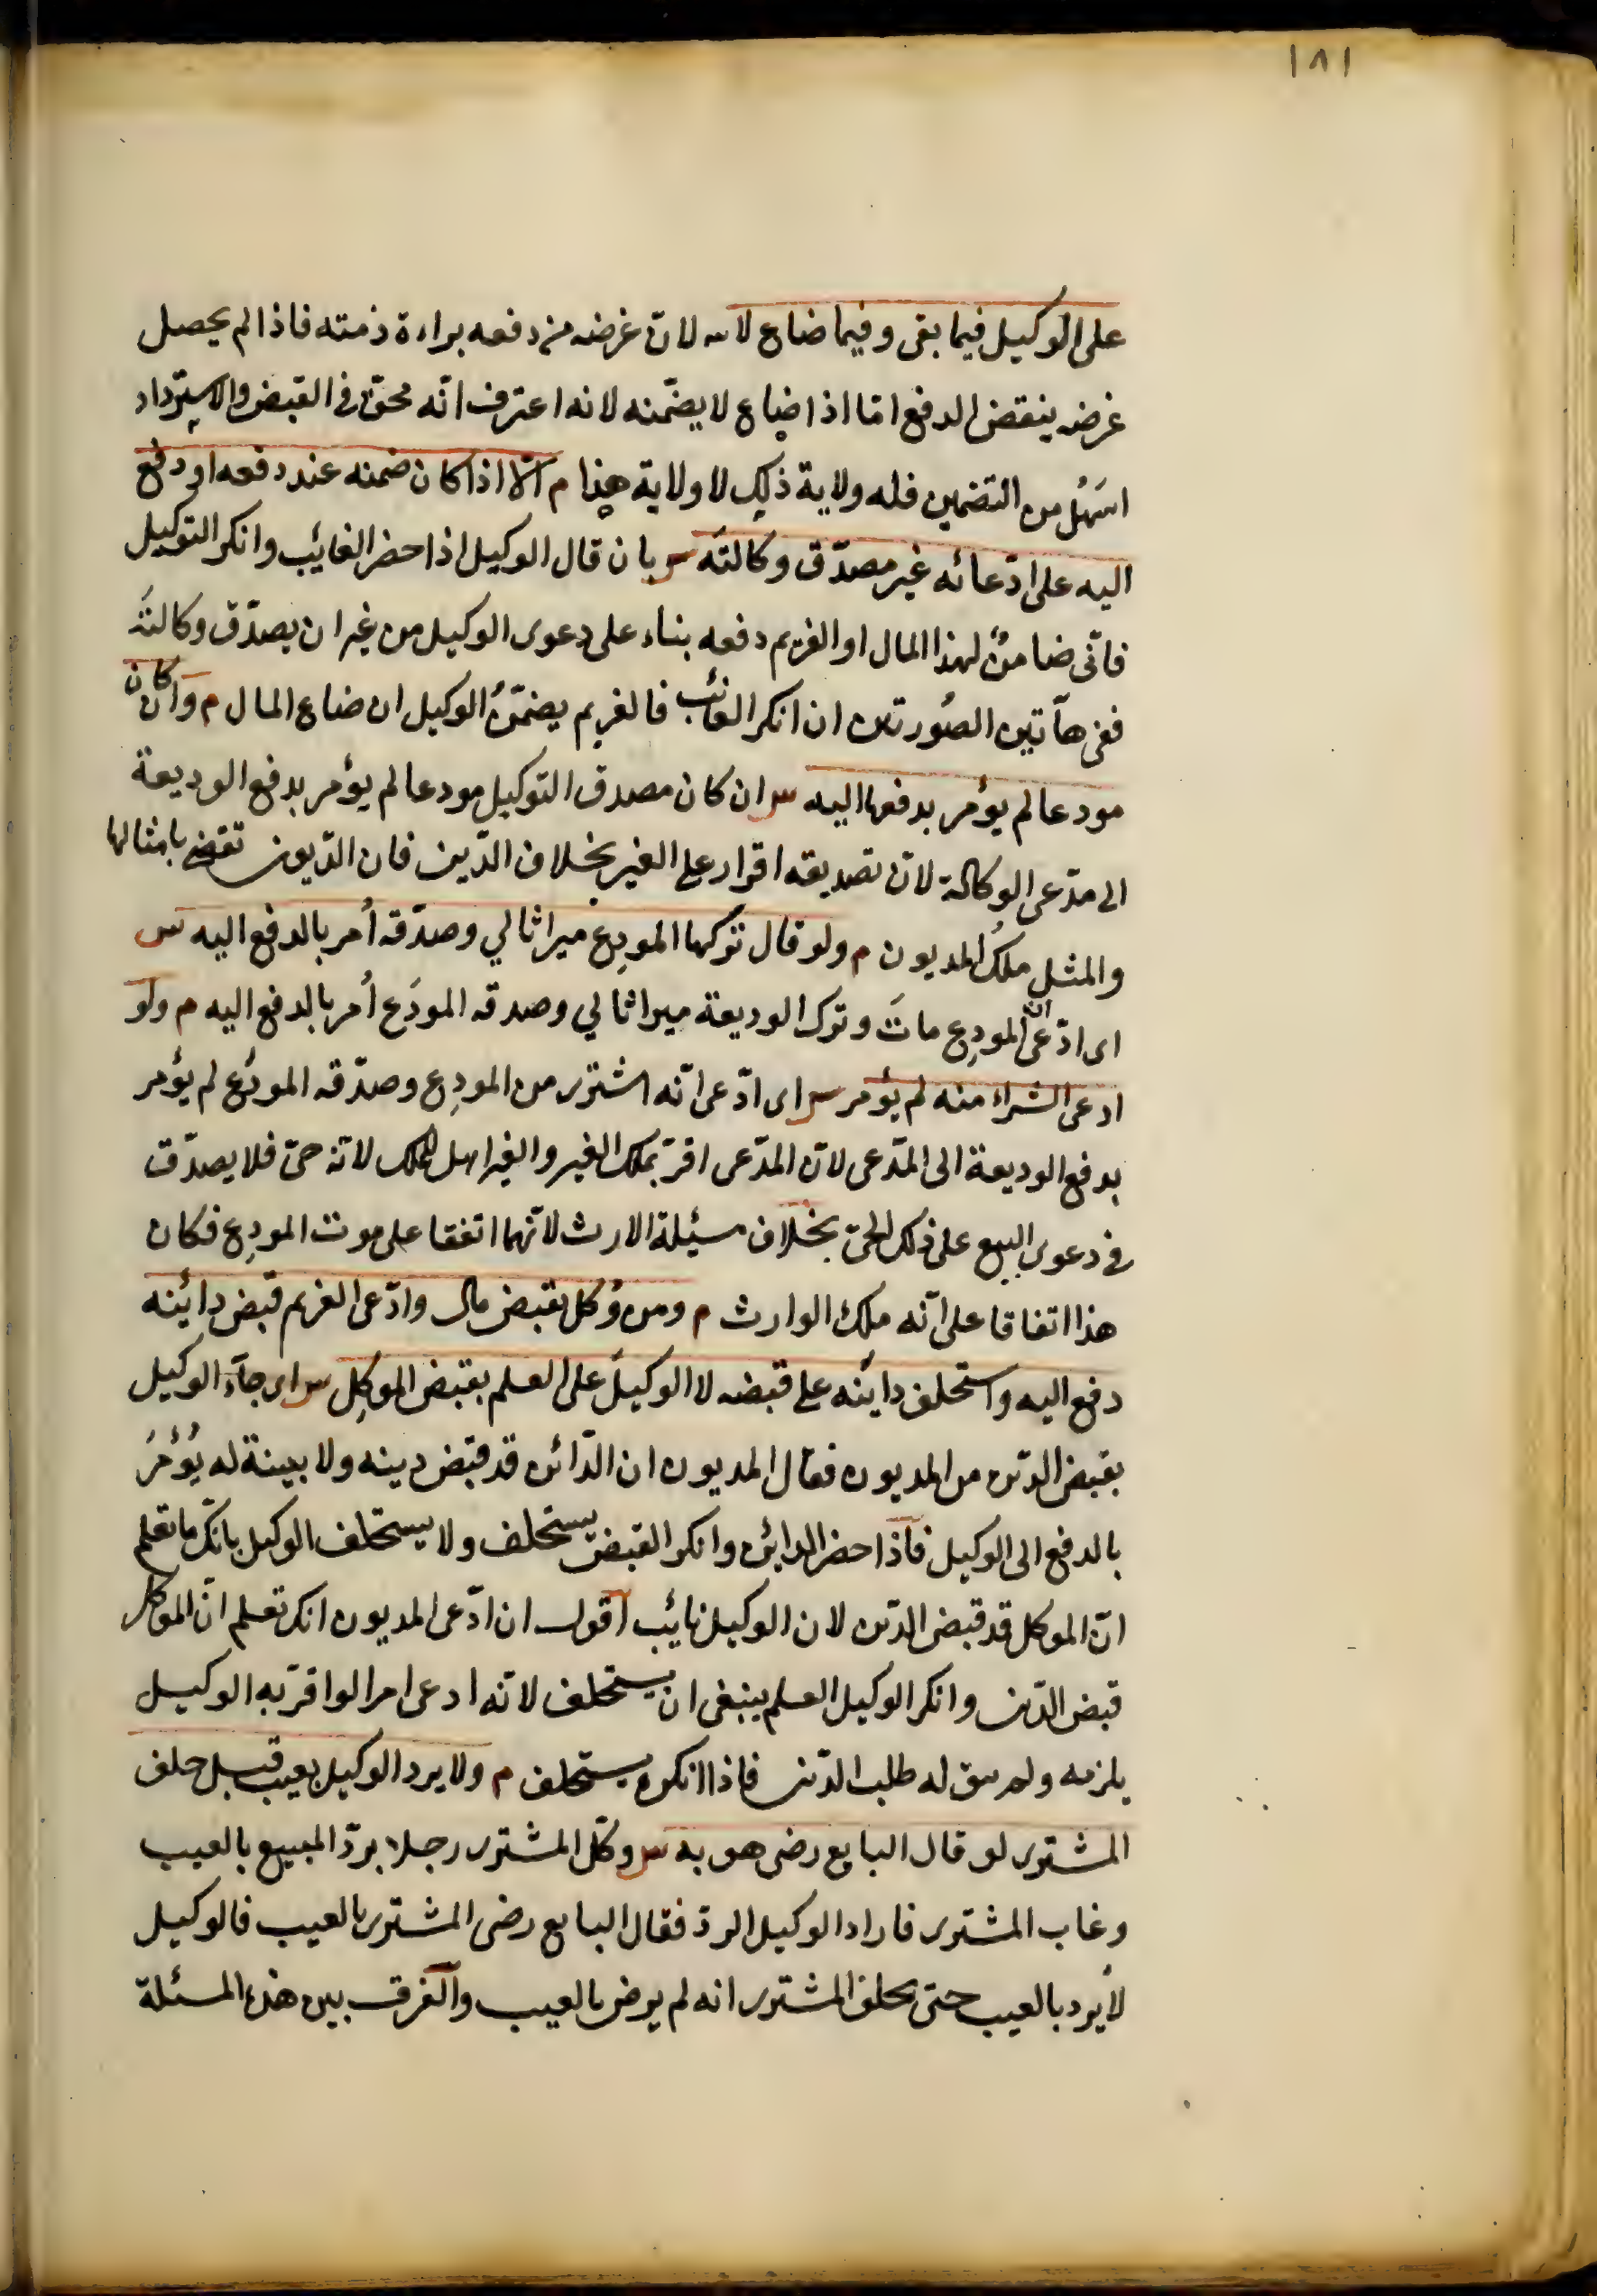 ١٨١
على الوكيل فيما بقى وفيما ضاع لا س لان غرضه من دفعه براءة ذمته فاذا لم يحصل
غرضه ينقض الدفع امّا اذا ضاع لا يضمّنه لانه اعترف انّه محقّ فى القبض والاسترداد
اسهَلُ من التضمين فله ولاية ذلك لا ولاية هذا م الّا اذا كان ضمنه عند دفعه او دفع
اليه على ادّعائه غير مصدّق وكالتَه س بان قال الوكيل اذا حضر الغائب وانكر التوكيل
فانّى ضامنٌ لهذا المال او الغريم دفعه بناء على دعوى الوكيل من غير ان يصدّق وكالتَه
ففى هآتين الصُورتين ان انكر الغائب فالغريم يضمّنُ الوكيل ان ضاع المال م وان كان
مودعا لم يؤمر بدفعها اليه س ان كان مصدق التوكيل مودعا لم يؤمر بدفع الوديعة
الى مدّعى الوكالة لانّ تصديقه اقرار على الغير بخلاف الدّين فان الدّيون تقضى بامثالها
والمثل ملكُ المديون م ولو قال تركها المودِع ميراثا لي وصدّقه أُمر بالدفع اليه س
اى ادّعى انّ المودِع ماتَ وترك الوديعة ميراثا لي وصدقه المودَع أُمر بالدفع اليه م ولو
ادعى الشراء منه لم يؤمر س اى ادّعى انّه اشترى من المودِع وصدّقه المودَع لم يؤمر
بدفع الوديعة الى المدّعى لانّ المدّعى اقرّ بملك الغير والغير اهل للملك لانّه حىّ فلا يصدّق
فى دعوى البيع على ذلك الحىّ بخلاف مسئلة الارث لانّهما اتفقا على موت المودِع فكان
هذا اتفاقا على انّه ملك الوارث م ومن وُكل بقبض مال وادّعى الغريم قبض دائنه
دفع اليه واستحلف دائنه على قبضه لا الوكيلَ على العلم بقبض الموكِل س اى جآء الوكيل
بقبض الدّين من المديون فقال المديون ان الدّائن قد قبض دينه ولا بينة له يُؤْمَرُ
بالدفع الى الوكيل فاذا حضر الدائن وانكر القبض يستحلف ولا يستحلف الوكيل بانّك ما تعلم
انّ الموكل قد قبض الدّين لان الوكيل نائب اقول ان ادّعى المديون انك تعلم انّ الموكل
قبض الدّين وانكر الوكيل العلم ينبغى ان يستحلف لانّه ادعى امرا لو اقرّ به الوكيل
يلزمه ولم يبق له طلب الدّين فاذا انكره يستحلف م ولا يرد الوكيل بعيب قبل حلف
المشترى لو قال البايع رضى هو به س وكّل المشترى رجلا بردّ المبيع بالعيب
وغاب المشترى فاراد الوكيل الردّ فقال البايع رضى المشترى بالعيب فالوكيل
لا يرد بالعيب حتى يحلف المشترى انه لم يرض بالعيب والفرق بين هذه المسئلة